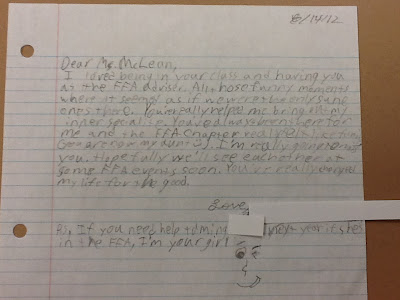 8/14/12
Dear Ms. McLeon,
I loved being in your class and having you
as the FFA adviser. All those funny moments
where it seemed as if we were the only sane
ones there. You really helped me bring out my
inner special sin. You've always been there for
me and the FFA Chapter
I'm really gonna miss
you. Hopefully we'll see each other at
some FFA events soon. You've really changed
my life for the good.
Love,
Ps. If you need help next year
in the FFA, I'm your girl